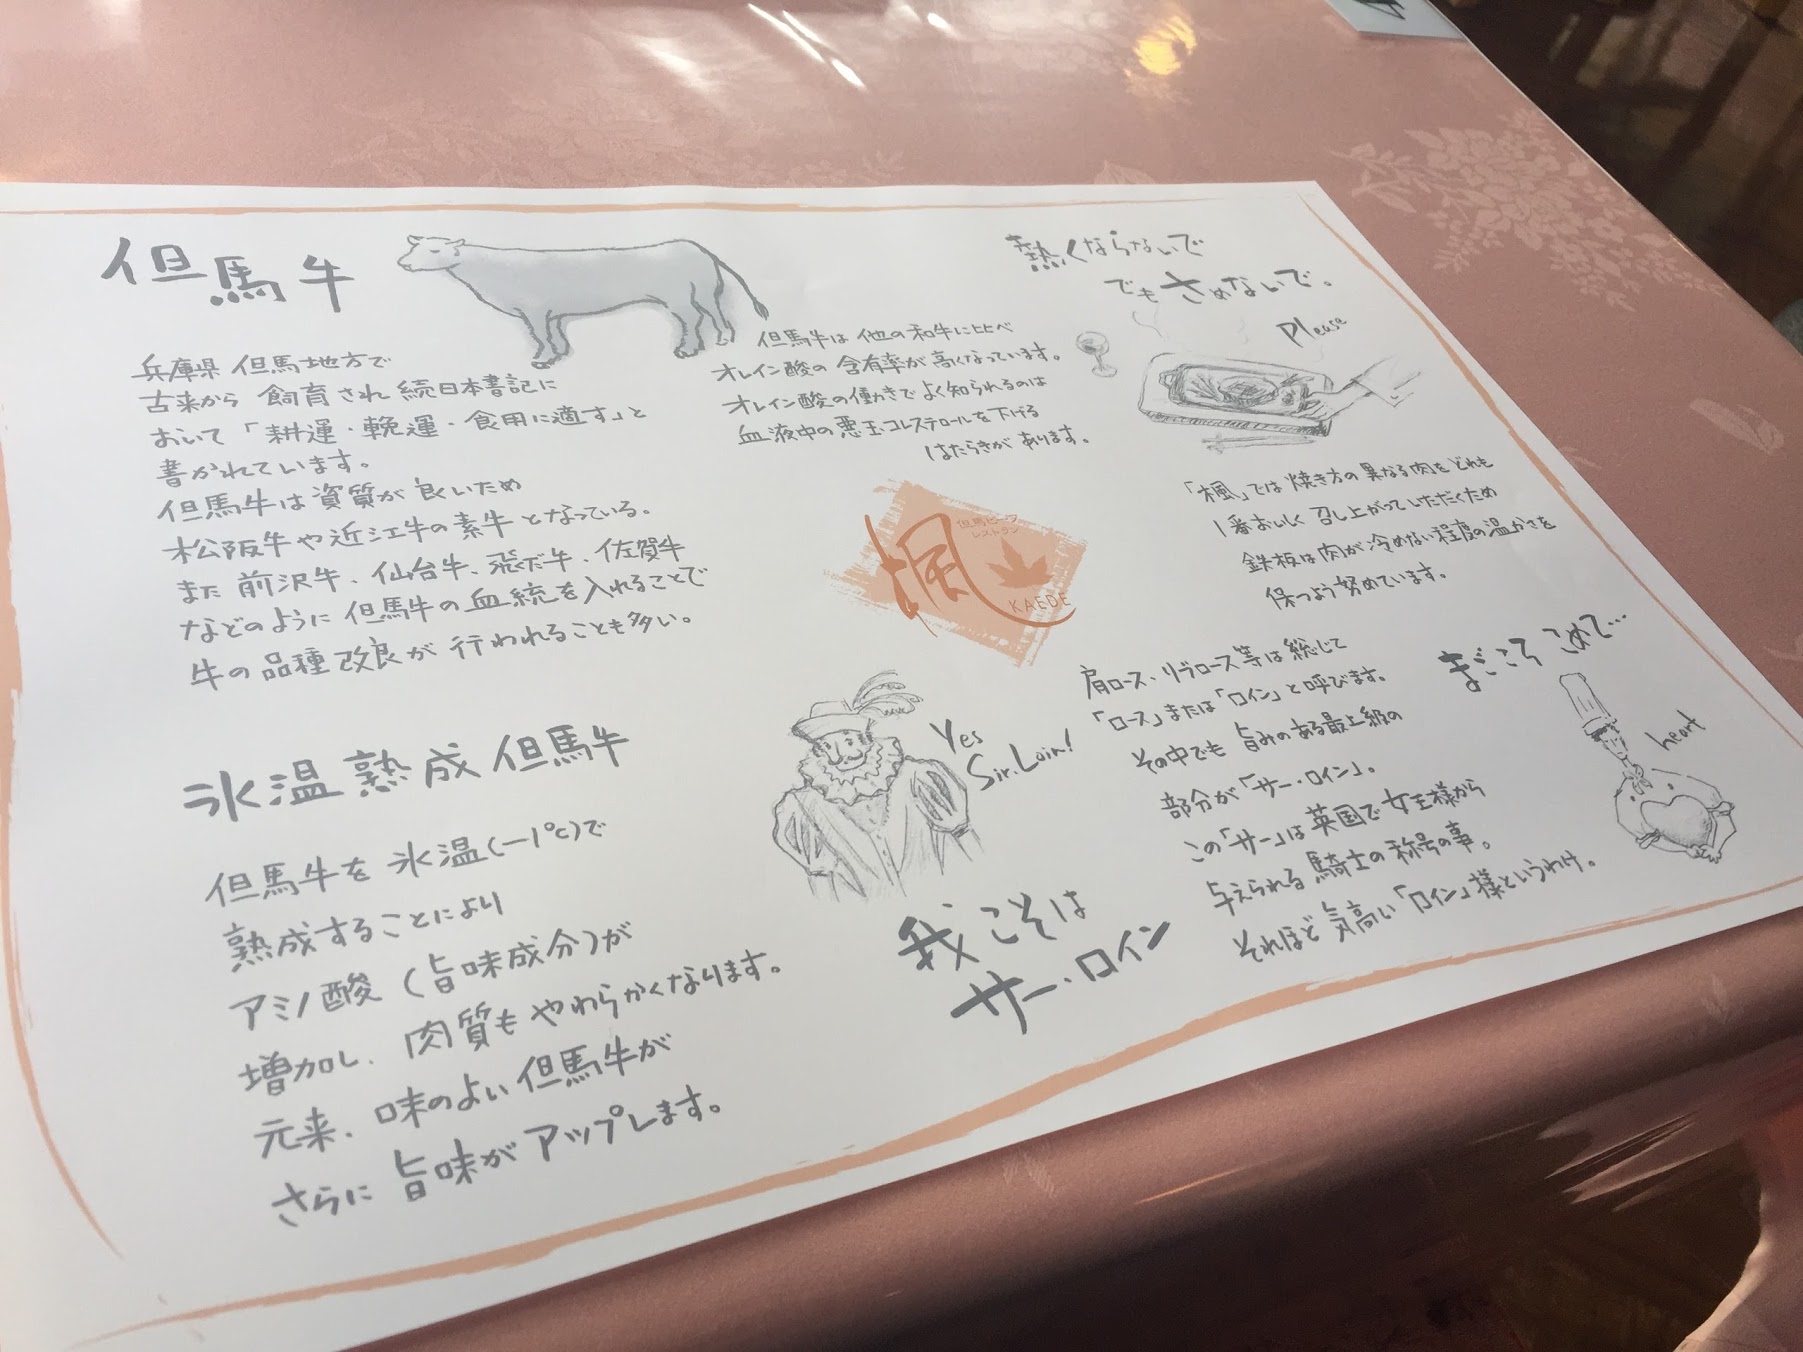 但馬牛
兵庫県 但馬地方で
古来から 飼育され 続日本書記に
おいて「耕運・輓運・食用に適す」と
書かれています。
但馬牛は資質が良いため
松阪牛や近江牛の素牛となっている。
また 前沢牛、仙台牛、飛だ牛、佐賀牛
などのように 但馬牛の血統を入れることで
牛の品種改良が行われることも多い。
但馬牛は他の和牛に比べ
オレイン酸の含有率が高くなっています。
オレイン酸の働きでよく知られるのは
血液中の悪玉コレステロールを下げる
はたらきがあります。
熱くならないで
でもさめないで。
Please
「楓」では焼き方の異なる肉をどれも
1番おいしく召し上がっていただくため
鉄板は肉が冷めない程度の温かさを
保つよう努めています。
但馬ビーフ
レストラン
楓
KAEDE
氷温熟成但馬牛
但馬牛を氷温(-1℃)で
熟成することにより
アミノ酸(旨味成分)が
増加し、肉質もやわらかくなります。
元来、味のよい但馬牛が
さらに旨味がアップします。
Yes
Sir.Loin!
我こそは
サー・ロイン
肩ロース、リブロース等は総じて
「ロース」または「ロイン」と呼びます。
その中でも 旨みのある最上級の
部分が「サー・ロイン」。
この「サー」は英国で女王様から
与えられる騎士の称号の事。
それほど気高い「ロイン」様というわけ。
まごころこめて…
heart